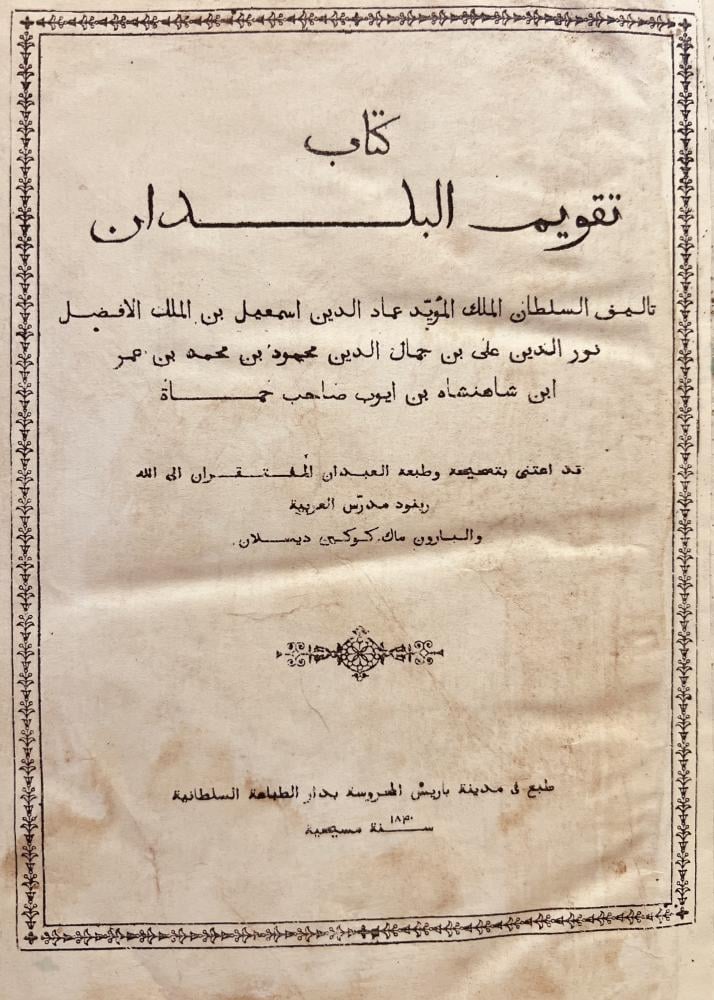 كتاب
تقويم البلدان
تاليف السلطان الملك المؤيّد عماد الدين اسمعيل بن الملك الافضل
نور الدين على بن جمال الدين محمود بن محمد بن عمر
ابن شاهنشاه بن ايوب صاحب حماة
قد اعتنى بتصحيحه وطبعه العبدان المفتقران الى الله
رينود مدرّس العربية
والبارون ماك كوكين ديسلان
طبع فى مدينة باريس المحروسة بدار الطباعة السلطانية
سنة ١٨٤٠ مسيحية